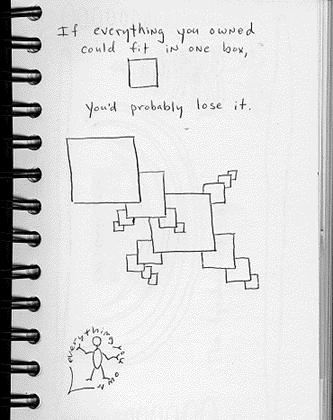 If everything you owned
could fit in one box,
You'd probably lose it.
everything you own